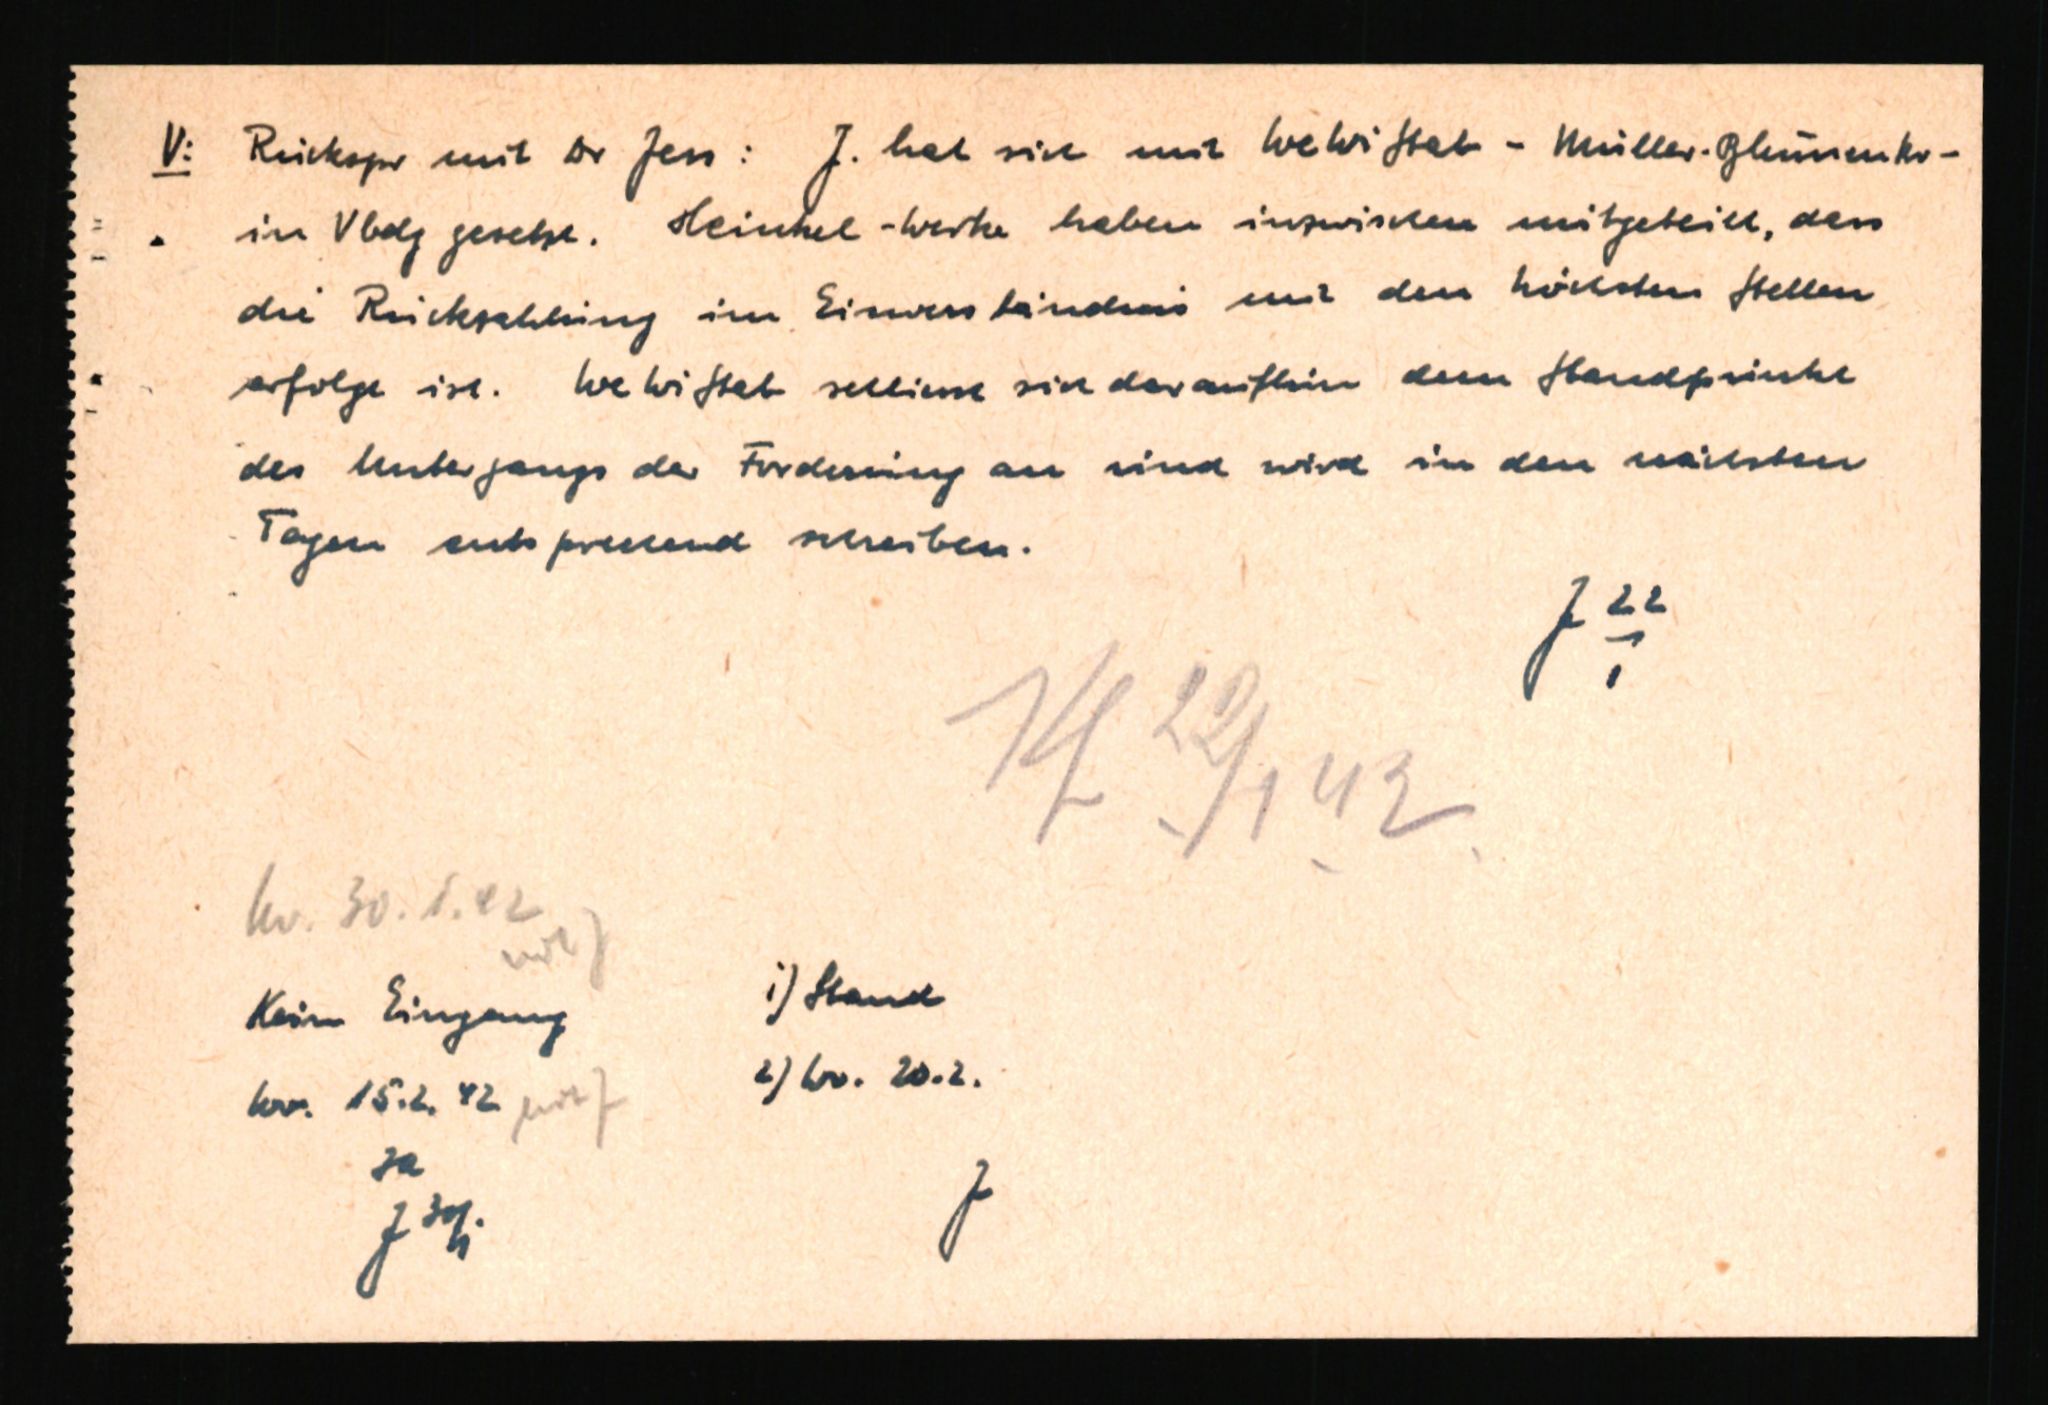 V: Rückspr mit Dr Jess: J. hat sich mit WeWiStab - Müller-Blumenkr-
in Vbdg gesetzt. Heinkel-Werke haben inzwischen mitgeteilt, dass
die Rückzahlung im Einverständnis mit den höchsten Stellen
erfolgt ist. WeWiStab schliesst sich daraufhin dem Standpunkt
des Untergangs der Forderung an und wird in den nächsten
Tagen entsprechend schreiben.
J 22/1
22/1 42
wv. 30.1.42
not J
Kein Eingang
wv. 15.2.42 not J
J 30/1.
1) Stand
2) wv. 20.2.
J